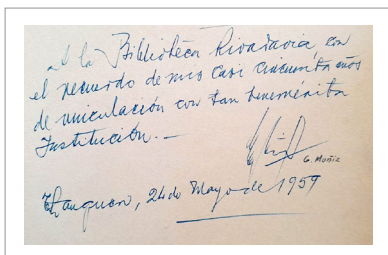 A la Biblioteca Rivadavia, con
el recuerdo de mis casi cincuenta años
de vinculación con tan benemérita
Institución. —
G. Muñiz
Thauquen, 24 de Mayo de 1959